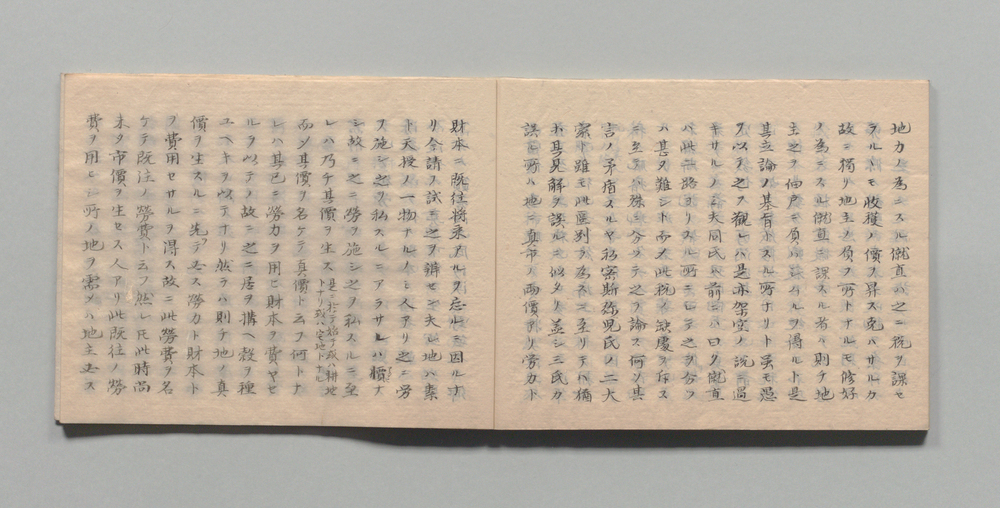 地力ノ為ニスル僦直ハ之ニ税ヲ課セ
ラルヽモ收獲ハ價ヲ昇ス克ハサルカ
故ニ獨リ地主ノ負フ所トナルモ修好
ノ為ニスル僦直ニ課スル者ハ則チ地
主之ヲ佃戸ニ負ハシムルヲ得ルト是
其立論ノ基育トスル所ナリト虽モ愚
ヲ以テ之ヲ観レハ是亦架空ノ説ニ過
キサルノミ夫同氏ハ前ニハ曰ク僦直
ハ此二路ヨリスル所ニシテ之ヲ分ツ
ハ甚タ難シト而メ此税ノ缺處ヲ斥ス
ニ至テハ殊ニ分ケテ之ヲ論ス何ソ其
言ノ矛盾スルヤ私密斯弥児氏ノ二大
家ト雖モ此區別ヲ為スニ至リテハ稍
ホ其見解ヲ誤ルニ似タリ蓋シ三氏カ
誤ル所ハ地ニ真市ノ両價アリ労力ト
財本ニ既往將来アルヲ忘ルヽニ因ルナ
リ余請フ試ニ之ヲ辯セン夫レ地ハ素
ト天授ノ一物ナルノミ人アリ之ニ労
ヲ施シ之ヲ私スルニアラサレハ價ナ
シ故ニ之ニ労ヲ施シ之ヲ私スルニ至
レハ乃チ其價ヲ生ス是ニ於テ始テ或ハ耕地トナリ或ハ宅地トナル
而メ其價ヲ名ケテ真價ト云フ何トナ
レハ其已ニ労力ヲ用ヒ財本ヲ費ヤセ
ルヲ以テノ故ニ之ニ居ヲ搆ヘ穀ヲ種
ユヘキヲ以テナリ然ラハ則チ地ノ真
價ヲ生スルニ先テハ必ス労力ト財本ト
ヲ費用セサルヲ得ス故ニ此労費ヲ名
ケテ既往ノ労費ト云フ然レ𪜈此時尚
未タ市價ヲ生セス人アリ此既往ノ労
費ヲ用ヒシ所ノ地ヲ需メハ地主必ス